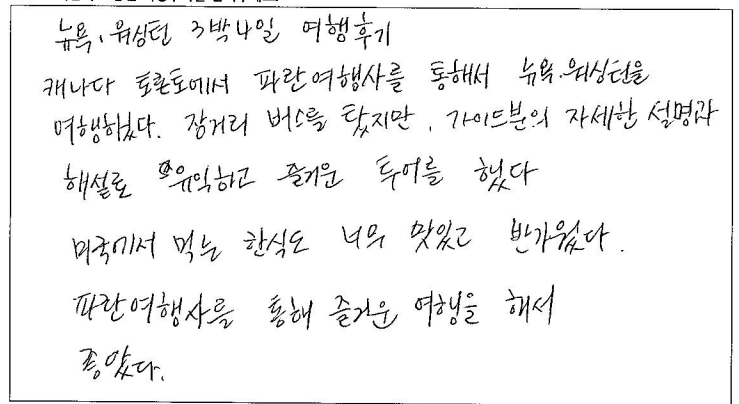 뉴욕, 워싱턴 3박4일 여행후기
캐나다 토론토에서 파란여행사를 통해서 뉴욕.워싱턴을
여행하였다. 장거리 버스를 탔지만, 가이드분의 자세한 설명과
해설로 유익하고 즐거운 투어를 했다
미국에서 먹는 한식도 너무 맛있고 반가웠다.
파란여행사를 통해 즐거운 여행을 해서
좋았다.